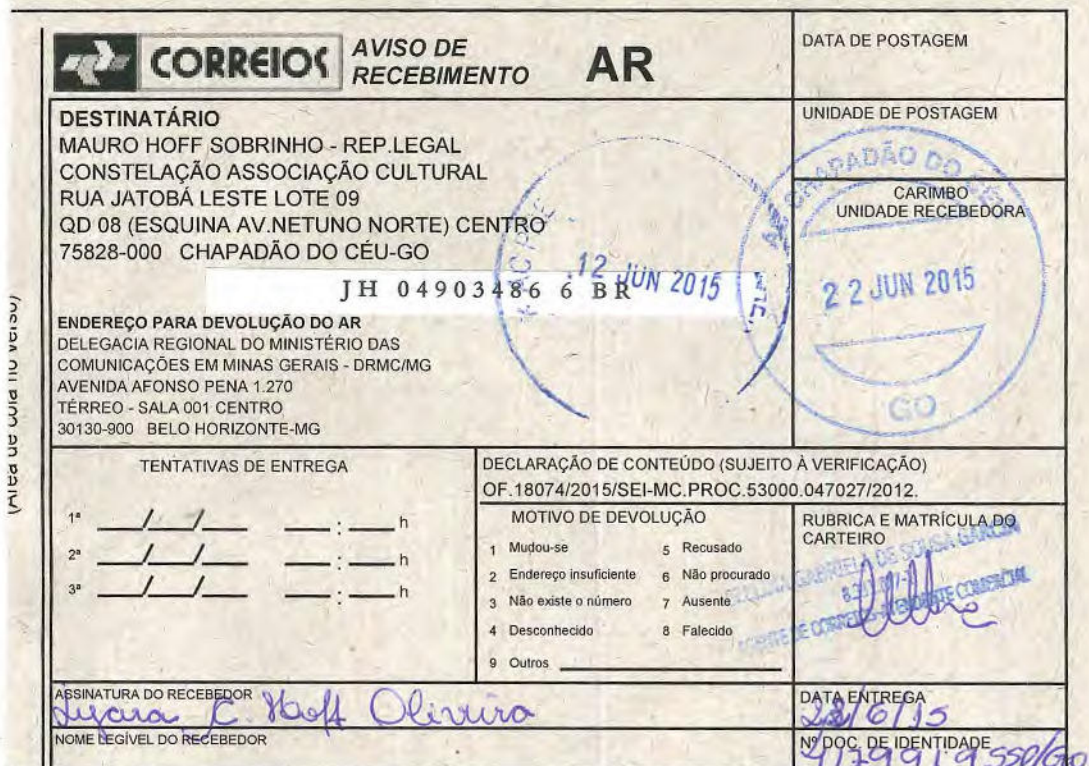 CORREIOS
AVISO DE
RECEBIMENTO
AR
DATA DE POSTAGEM
DESTINATÁRIO
MAURO HOFF SOBRINHO - REP.LEGAL
CONSTELAÇÃO ASSOCIAÇÃO CULTURAL
RUA JATOBÁ LESTE LOTE 09
QD 08 (ESQUINA AV.NETUNO NORTE) CENTRO
75828-000 CHAPADÃO DO CÉU-GO
UNIDADE DE POSTAGEM
CHAPADÃO DO CÉU
CARIMBO
UNIDADE RECEBEDORA
22 JUN 2015
GO
12 JUN 2015
JH 04903486 6 BR
ENDEREÇO PARA DEVOLUÇÃO DO AR
DELEGACIA REGIONAL DO MINISTÉRIO DAS
COMUNICAÇÕES EM MINAS GERAIS - DRMC/MG
AVENIDA AFONSO PENA 1.270
TÉRREO - SALA 001 CENTRO
30130-900 BELO HORIZONTE-MG
TENTATIVAS DE ENTREGA
1ª ___/___/___ ___:___ h
2ª ___/___/___ ___:___ h
3ª ___/___/___ ___:___ h
DECLARAÇÃO DE CONTEÚDO (SUJEITO À VERIFICAÇÃO)
OF.18074/2015/SEI-MC.PROC.53000.047027/2012.
MOTIVO DE DEVOLUÇÃO
1 Mudou-se
2 Endereço insuficiente
3 Não existe o número
4 Desconhecido
5 Recusado
6 Não procurado
7 Ausente
8 Falecido
9 Outros
RUBRICA E MATRÍCULA DO
CARTEIRO
GABRIELA DE SOUSA GARCIA
DE CORREIOS COMERCIAL
ASSINATURA DO RECEBEDOR
C. Hoff Oliveira
DATA ENTREGA
22/6/15
NOME LEGÍVEL DO RECEBEDOR
Nº DOC. DE IDENTIDADE
SSP/GO
(Área de cola no verso)